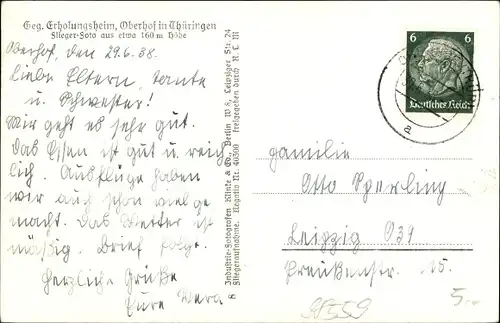 Geg. Erholungsheim, Oberhof in Thüringen
Flieger-Foto aus etwa 160 m Höhe
Oberhof, den 29.6.38.
Liebe Eltern, Tante
u. Schwester!
Mir geht es sehr gut.
Das Essen ist gut u. reich
lich. Ausflüge haben
wir auch schon viel ge
macht. Das Wetter ist
mäßig. Brief folgt.
Herzliche Grüße
Eure Vera
Industrie-Fotografen Klinke & Co., Berlin W 8, Leipziger Str. 24
Fliegeraufnahme. Negativ Nr. 40300 freigegeben durch R L M
6 6
Deutsches Reich
a
Familie
Otto Sperling
Leipzig O39
Preußenstr. 15.
98559
5.-